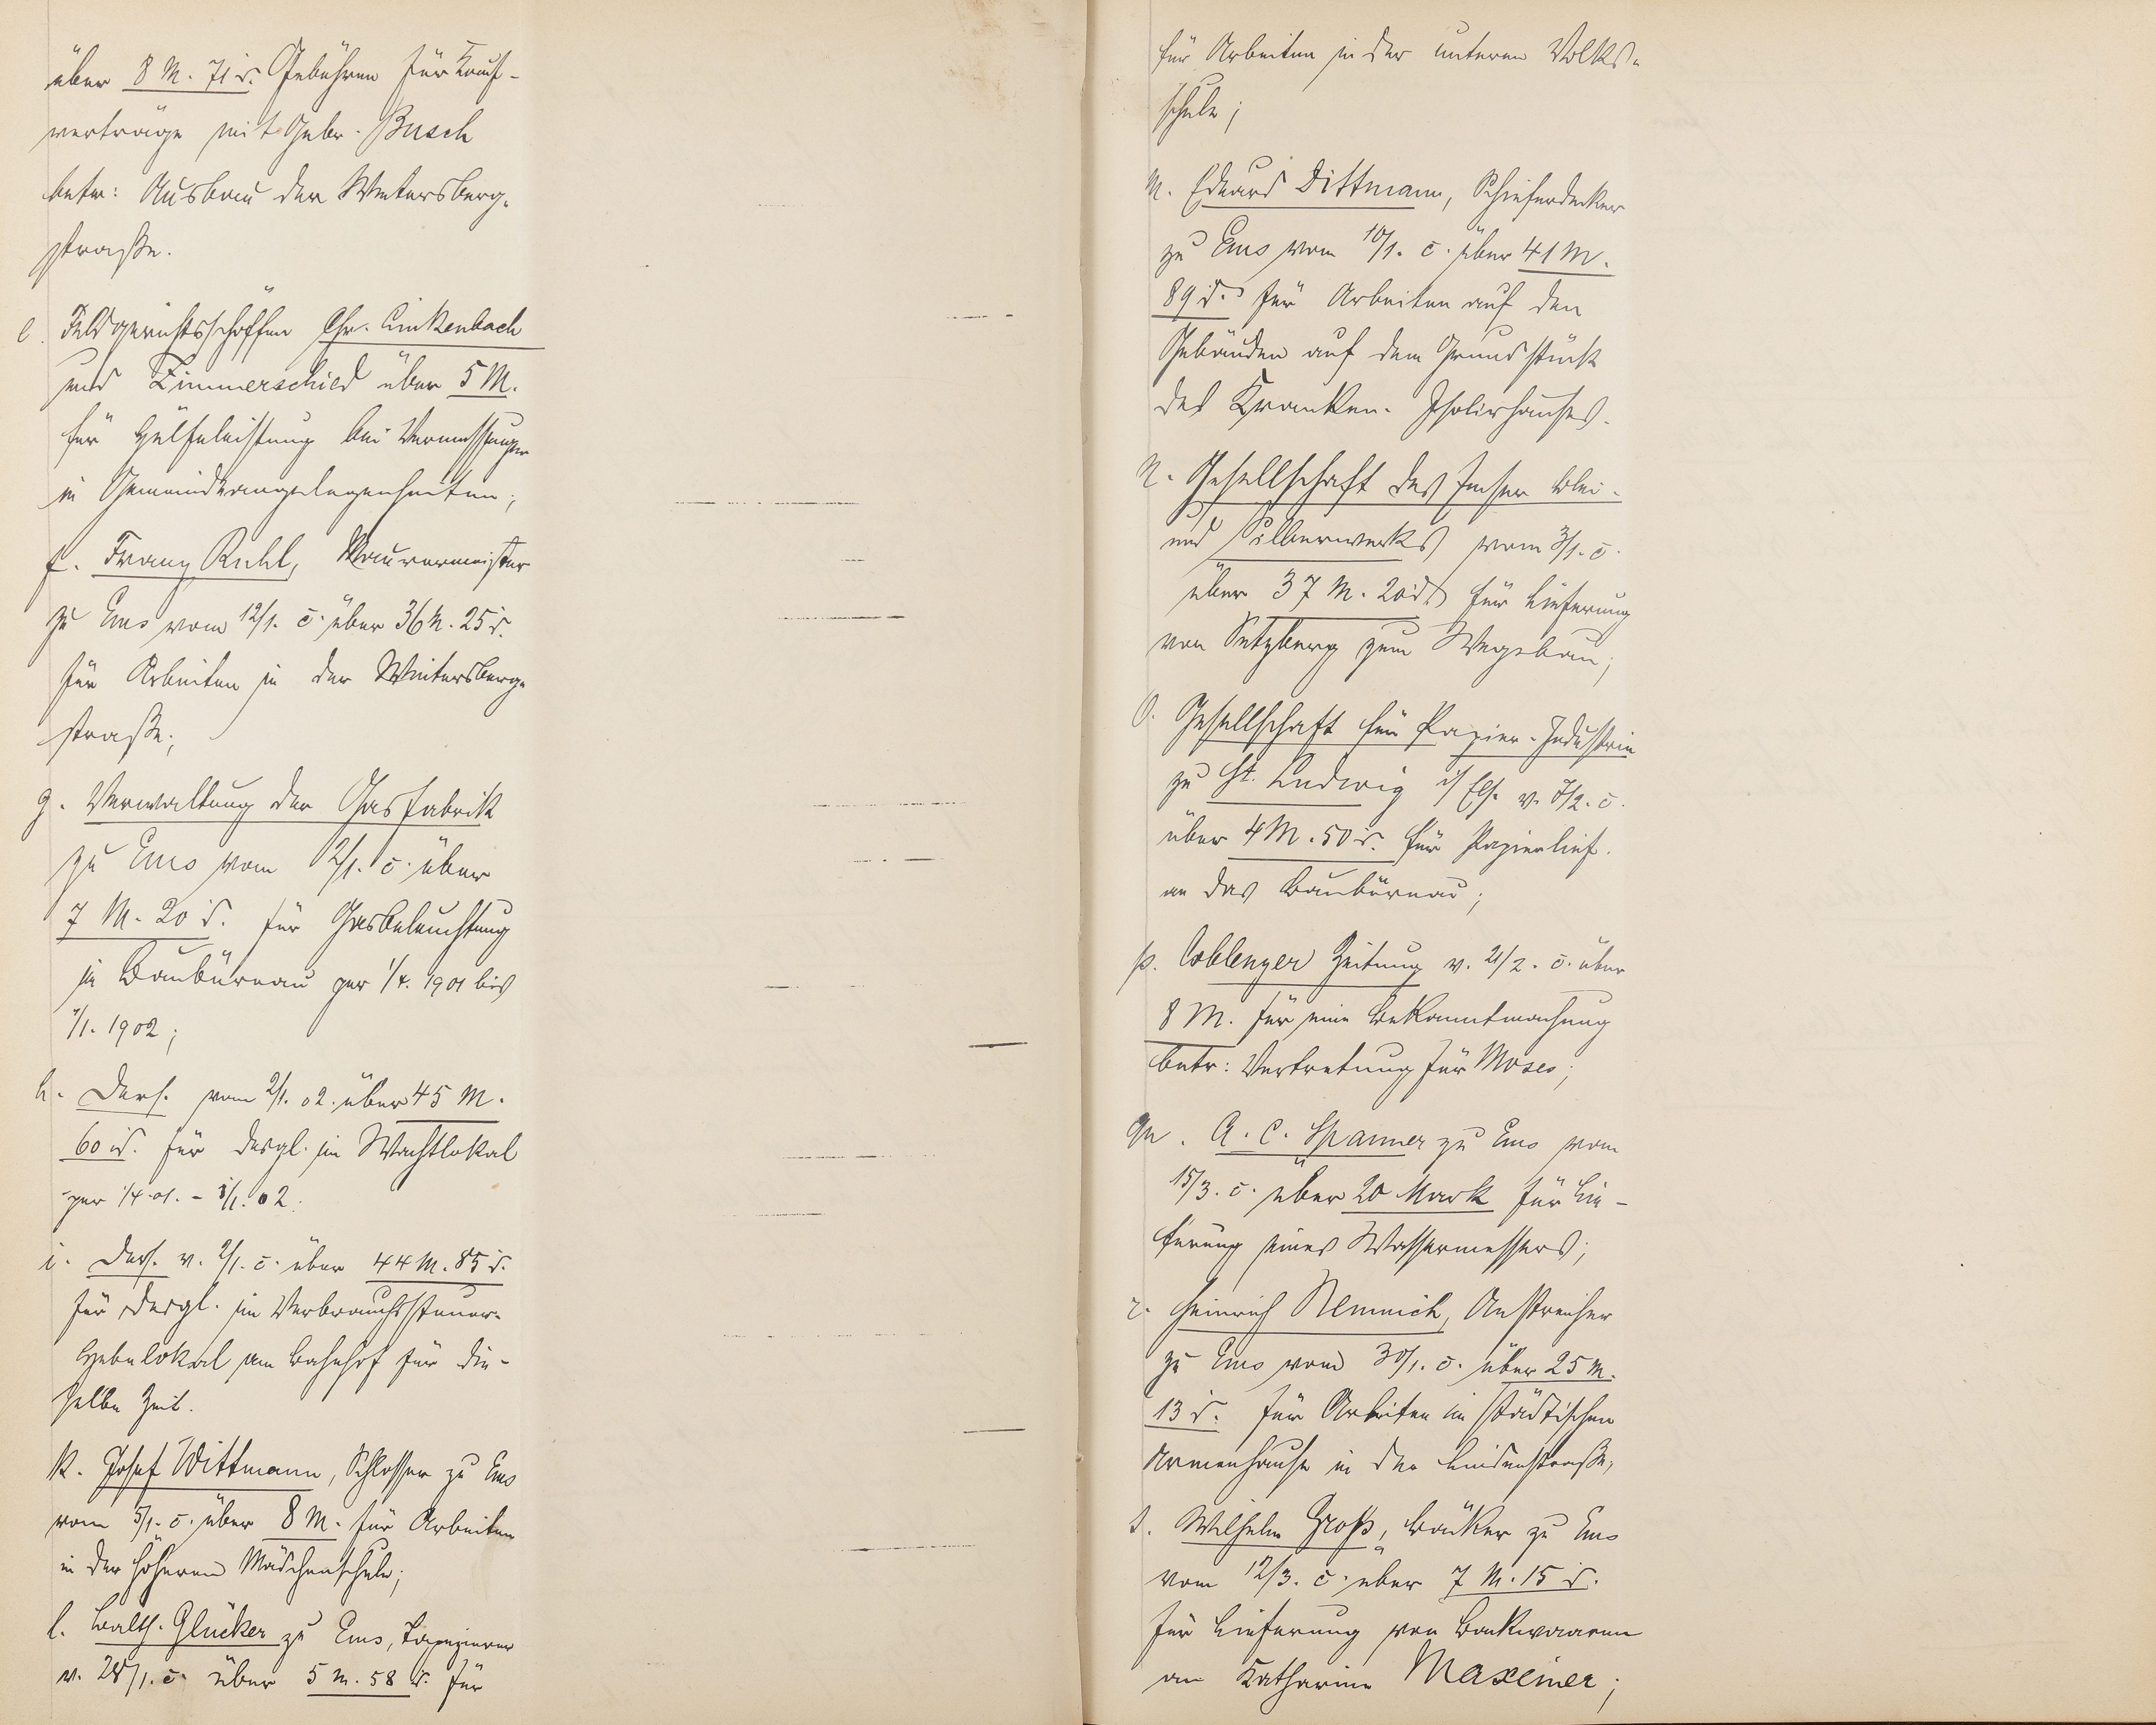 über 8 M. 71 d. Gebühren für Kauf-
verträge mit Gebr. Busch
betr: Ausbau der Wintersberg-
straße.
e. Feldgerichtsschöffen Chr. Linkenbach
und Zimmerschied über 5 M.
für Hülfeleistung bei Vermessungen
in Gemeindeangelegenheiten;
f. Franz Ruhl, Maurermeister
zu Ems vom 12/1. c. über 36 M. 25 d.
für Arbeiten in der Wintersberg-
straße;
g. Verwaltung der Gasfabrik
zu Ems vom 2/1. c. über
7 M. 20 d. für Gasbeleuchtung
im Baubüreau per 1/4. 1901 bis
1/1. 1902;
h. Dies. vom 2/1. 02. über 45 M.
60 d. für desgl. im Wachtlokal
per 1/4. 01. - 1/1. 02.
i. Dies. v. 2/1. c. über 44 M. 85 d.
für desgl. im Verbrauchssteuer-
Hebelokal am Bahnhof für die-
selbe Zeit.
k. Josef Wittmann, Schlosser zu Ems
vom 5/1. c. über 8 M. für Arbeiten
in der höheren Mädchenschule;
l. Balth. Glücker zu Ems, Tapezierer
v. 28/1. c. über 5 M. 58 d. für
für Arbeiten in der unteren Volks-
schule;
m. Eduard Dittmann, Schieferdecker
zu Ems vom 10/1. c. über 41 M.
89 d. für Arbeiten auf den
Gebäuden auf dem Grundstück
des Kranken-Isolirhauses.
n. Gesellschaft des Emser Blei-
und Silberwerks vom 3/1. c.
über 37 M. 20 d. für Lieferung
von Setzberg zum Wegebau;
o. Gesellschaft für Papier-Industrie
zu St. Ludwig i/Els. v. 7/2. c.
über 4 M. 50 d. für Papierlief.
an das Baubüreau;
p. Coblenzer Zeitung v. 21/2. c. über
8 M. für eine Bekanntmachung
betr: Vertretung für Moses;
qu. A. C. Spanner zu Ems vom
15/3. c. über 20 Mark für Lie-
ferung eines Wassermessers;
r. Heinrich Nemnich, Anstreicher
zu Ems vom 30/1. c. über 25 M.
13 d. für Arbeiten im städtischen
Armenhause in der Lindenstraße,
s. Wilhelm Groß, Bäcker zu Ems
vom 12/3. c. über 7 M. 15 d.
für Lieferung von Backwaaren
an Katharine Maxeiner;